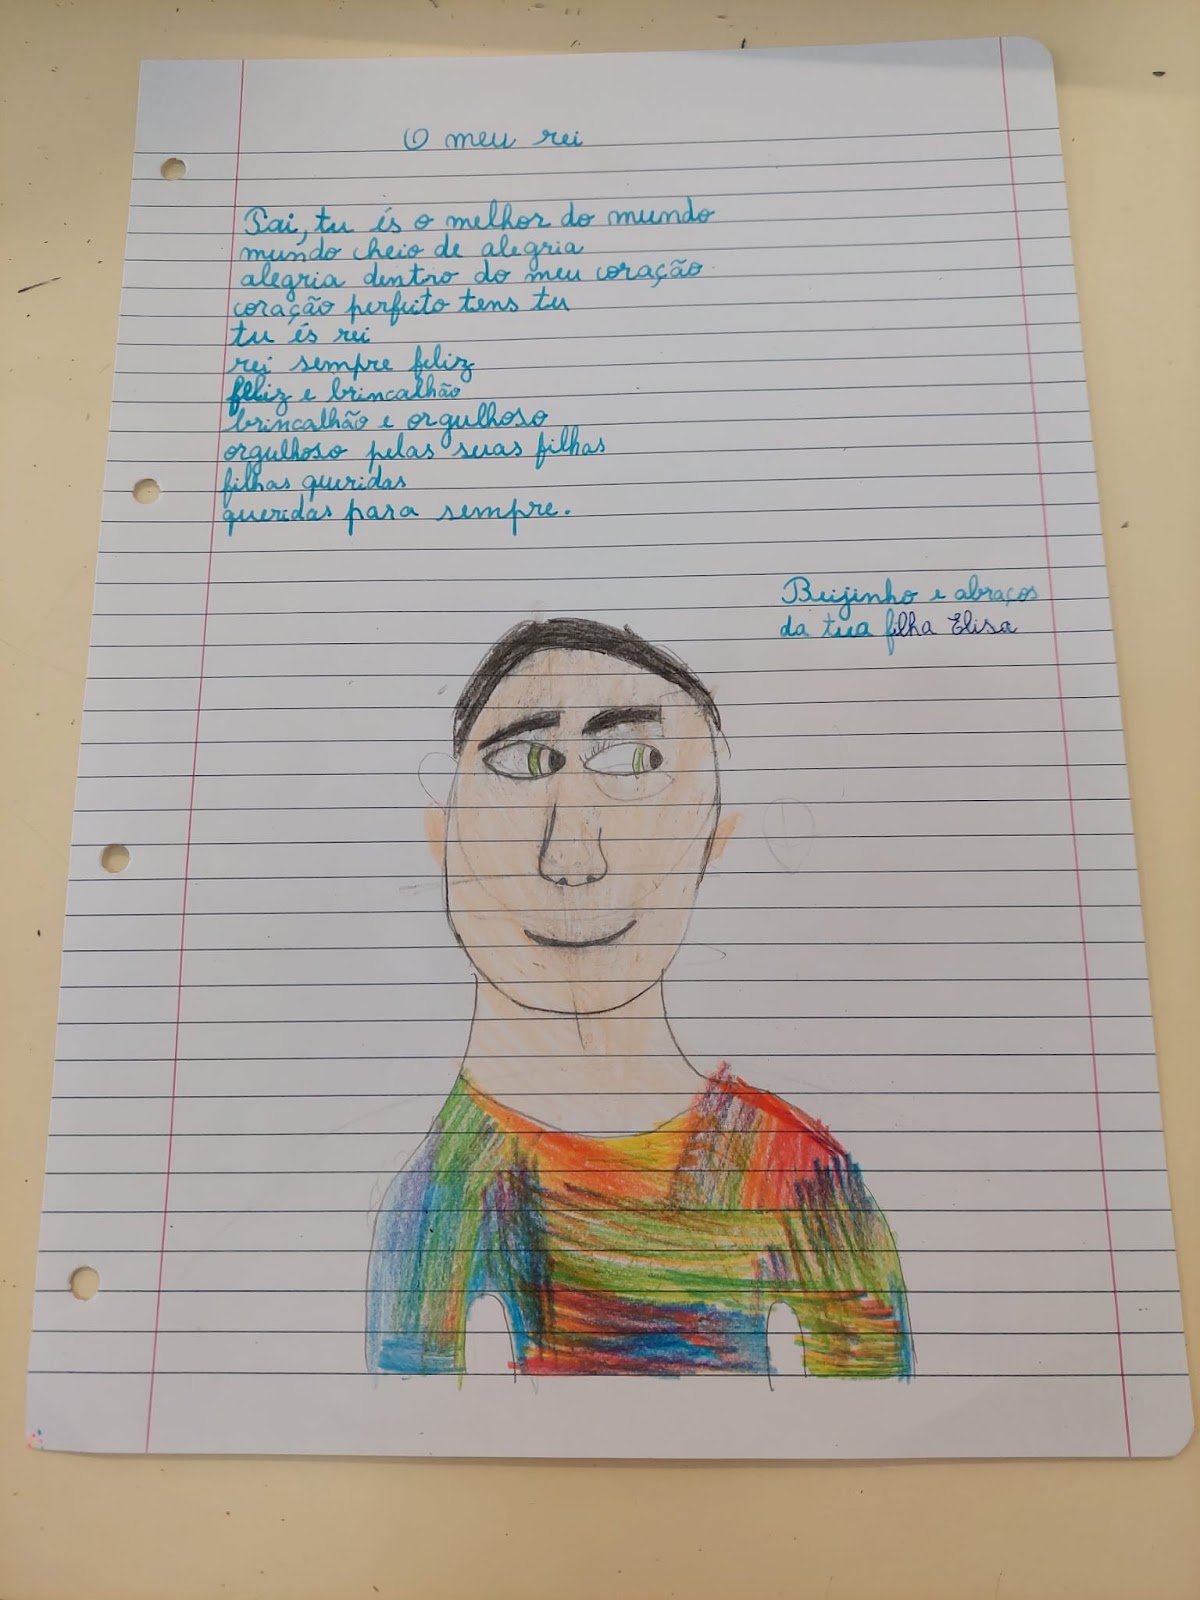 O meu rei
Pai, tu és o melhor do mundo
mundo cheio de alegria
alegria dentro do meu coração
coração perfeito tens tu
tu és rei
rei sempre feliz
feliz e brincalhão
brincalhão e orgulhoso
orgulhoso pelas suas filhas
filhas queridas
queridas para sempre.
Beijinho e abraços
da tua filha Elisa